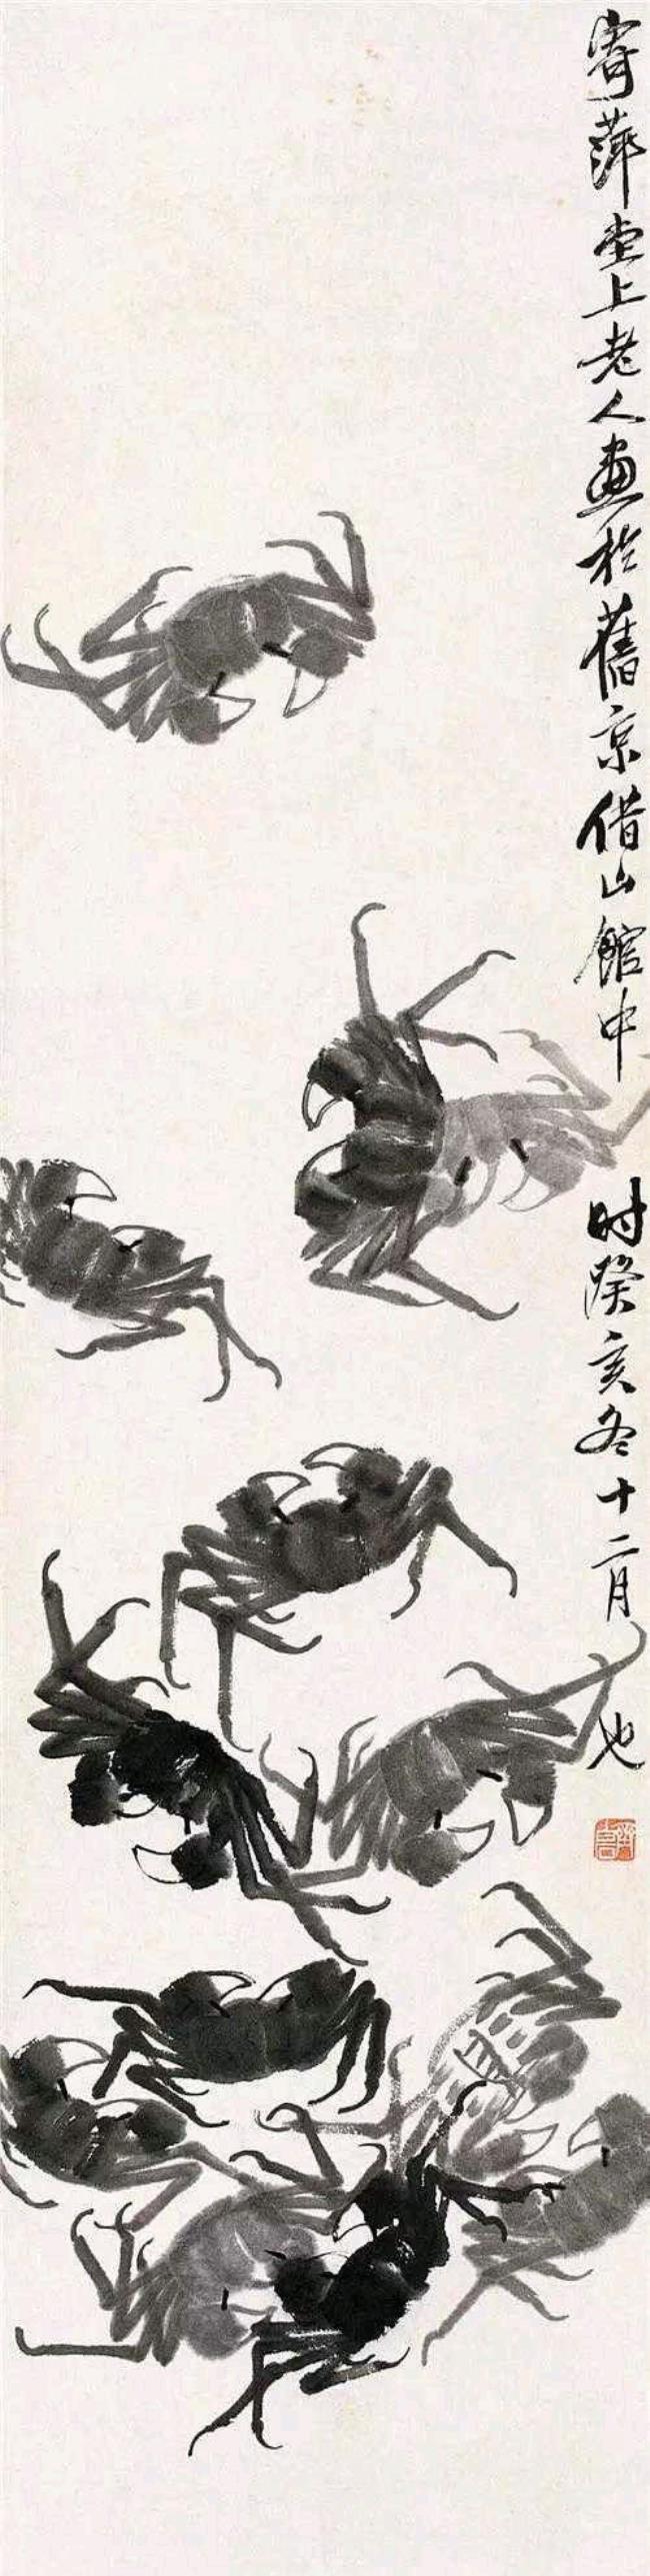 寄萍堂上老人畫於舊京借山館中 時癸亥冬十二月也